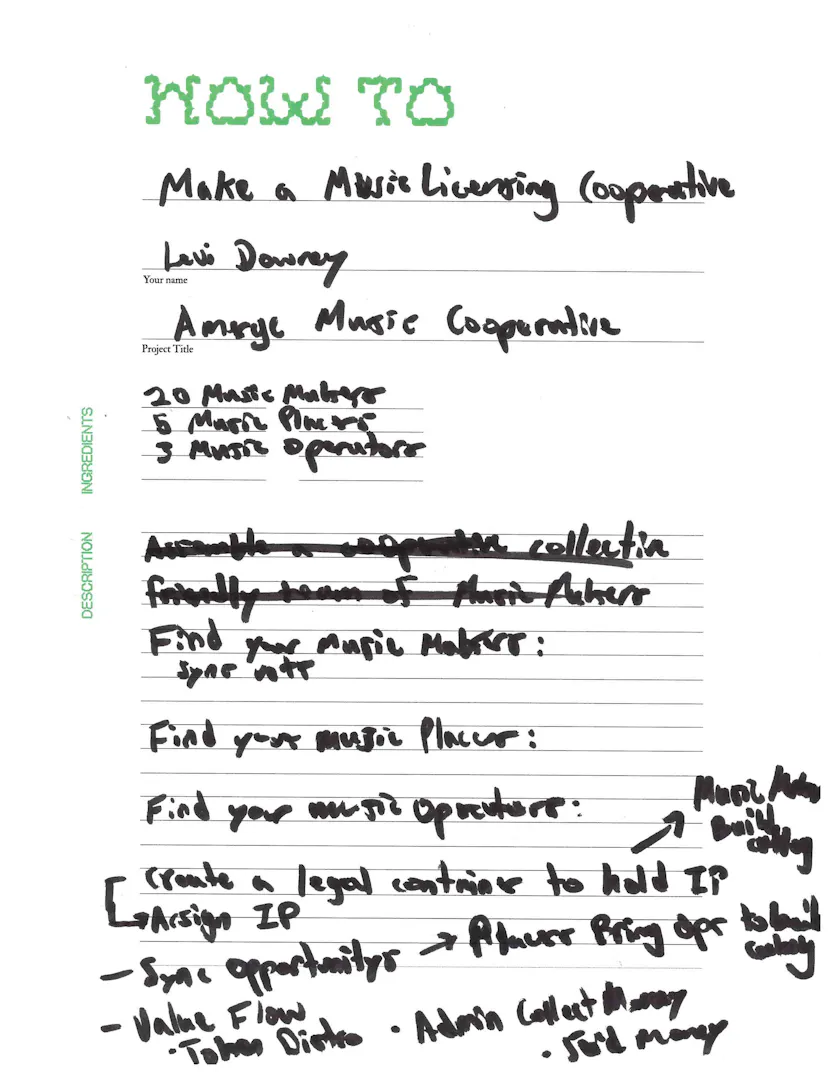 HOW TO
Make a Music Licensing Cooperative
Levi Downey
Your name
Amerge Music Cooperative
Project Title
INGREDIENTS
20 Music Makers
5 Music Placers
3 Music Operators
DESCRIPTION
Assemble a cooperative collectin
friendly team of Music Makers
Find your Music Makers:
sync
Find your music Placers:
Find your music Operators:
Music
Build
catalog
Create a legal container to hold IP
Assign IP
- Sync Opportunitys
Placers Bring Opr to build
- Value Flow
· Token Distro
· Admin Collect Money
· Send money